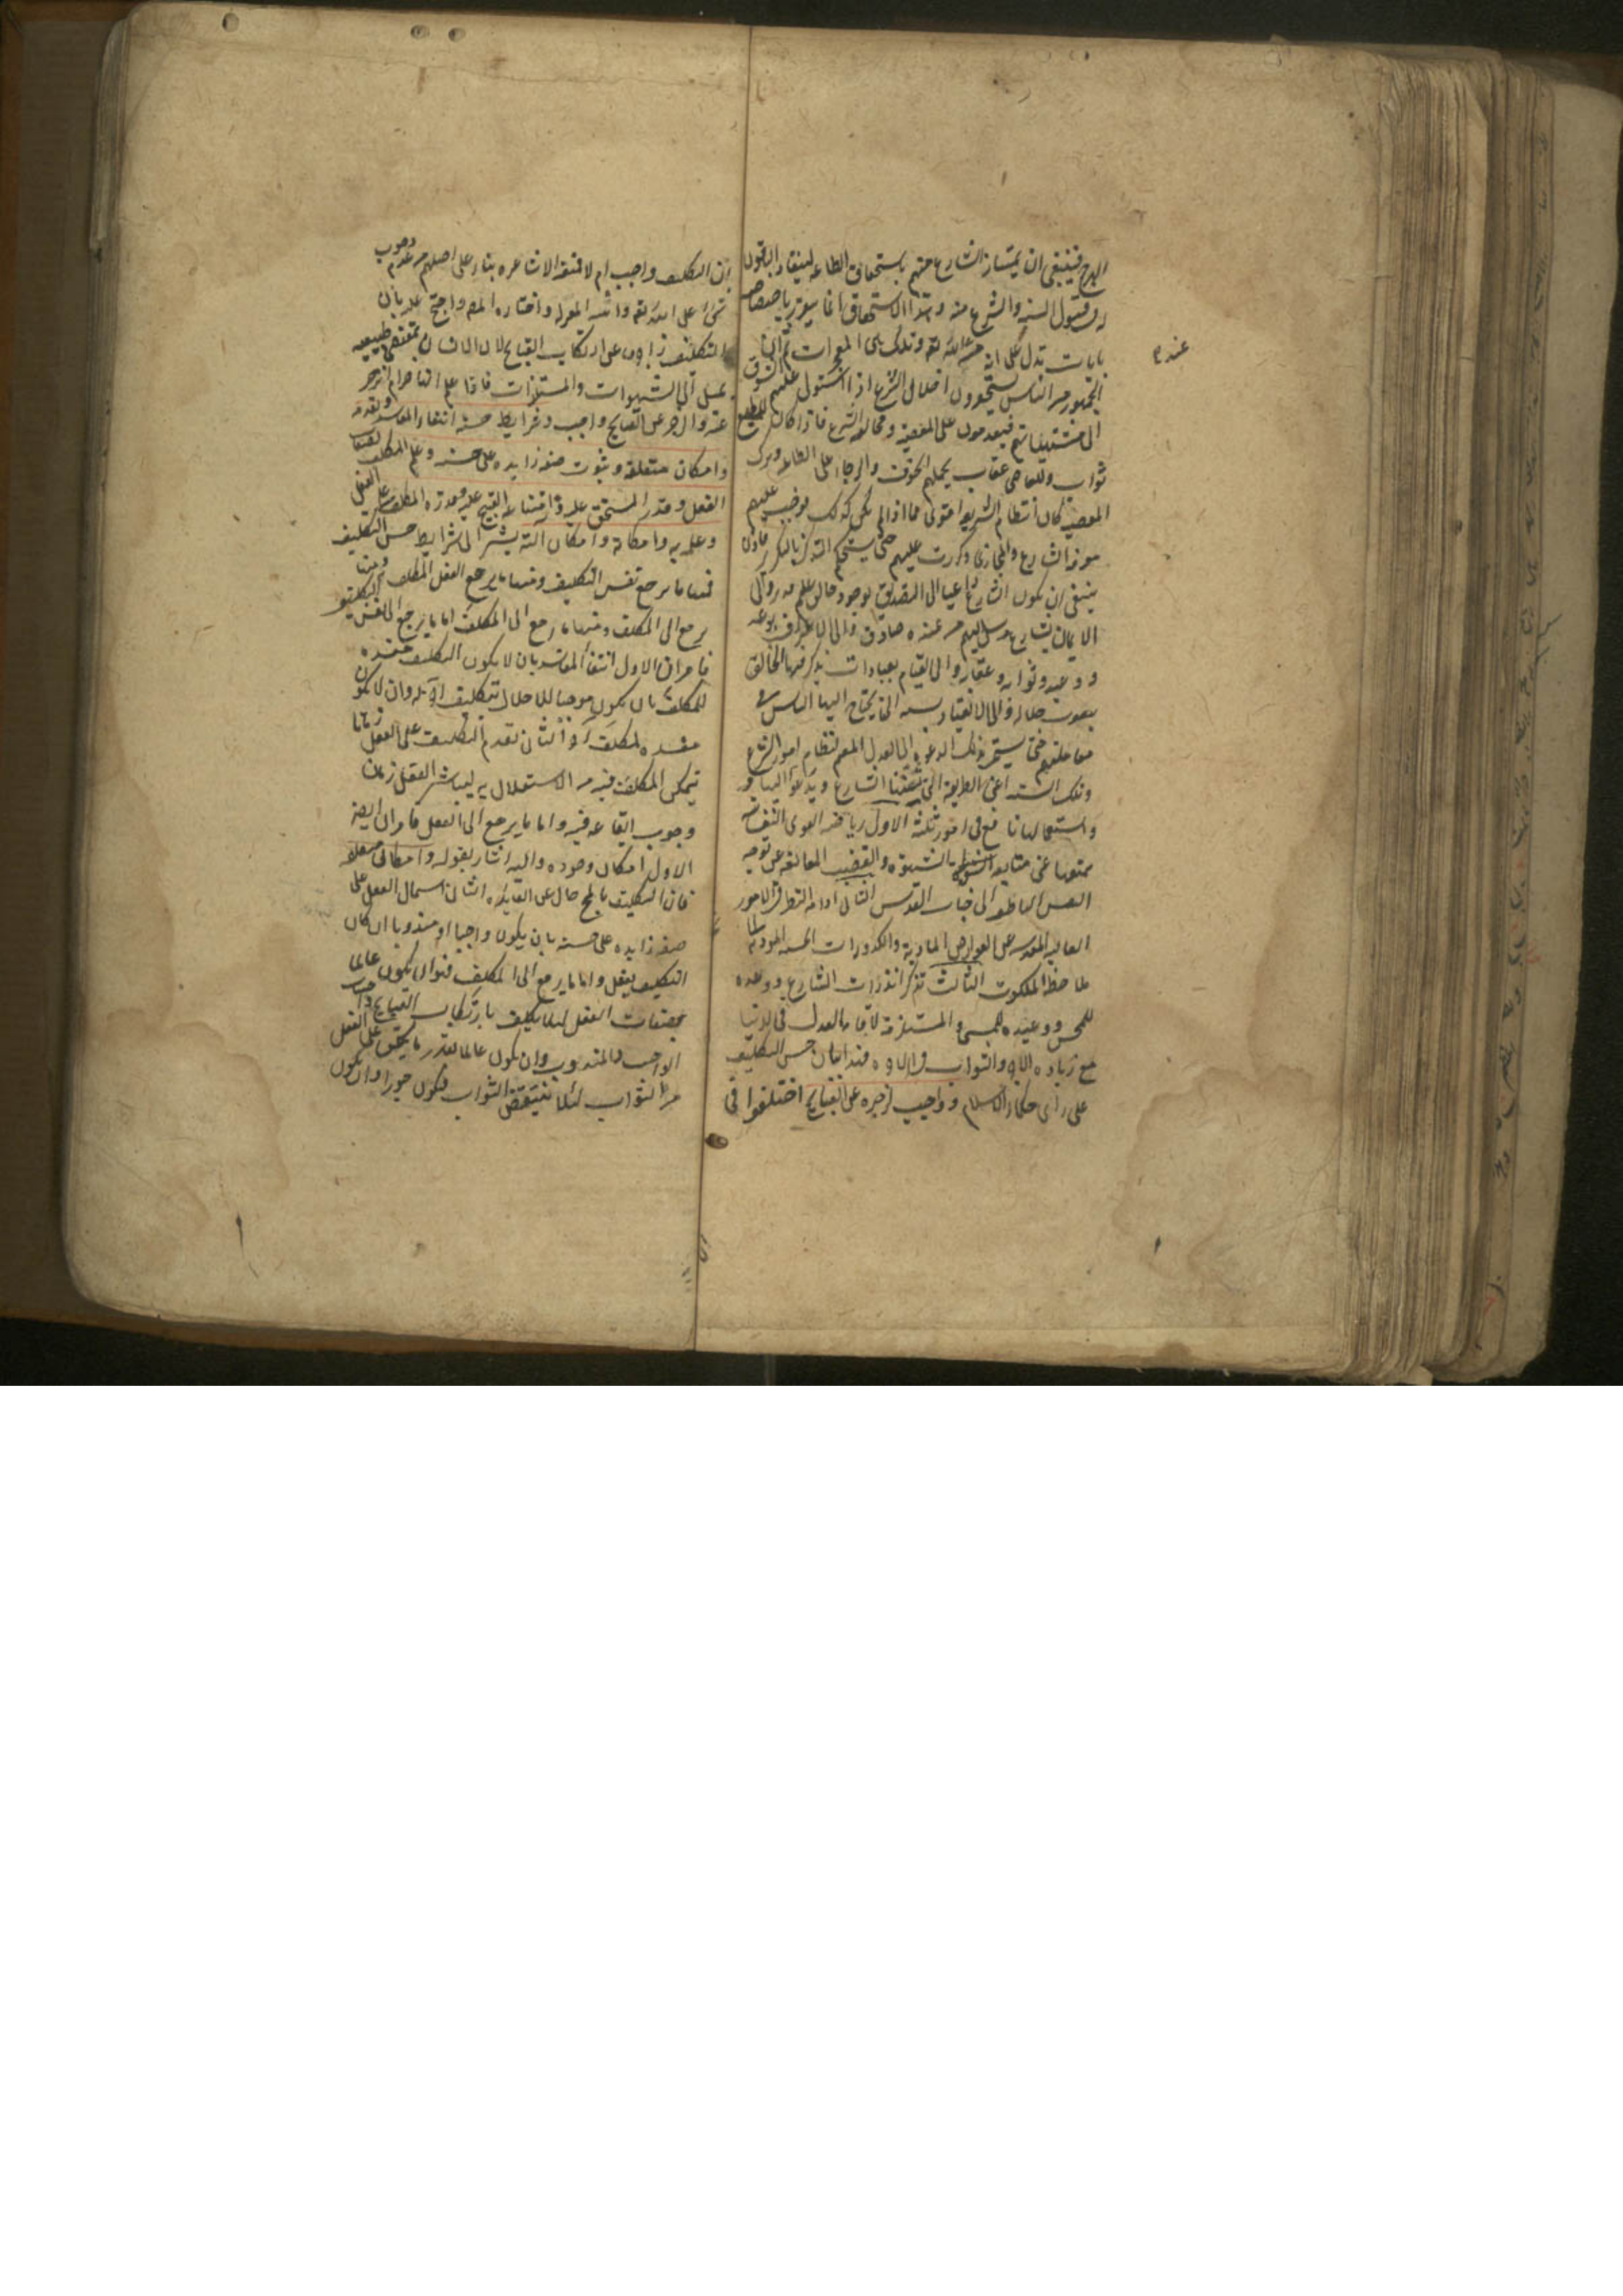 الهرج فينبغي ان يمتاز الشارع منهم باستحقاق الطاعة لينقاد الباقون
له في قبول السنة والشرع منه وهذا الاستحقاق انما يتقرر باختصاصه
بايات تدل على انه من عند الله تعالى وتلك هي المعجزات ثم ان
عنده
الجمهور من الناس يستحقرون اختلال الشرع اذا استولى عليهم الشوق
الى مشتهياتهم فيقدمون على المعصية ومخالفة الشرع فاذا كان للمطيع
ثواب وللعاصي عقاب يحملهم الخوف والرجاء على الطاعة وترك
المعصية كان انتظام الشريعة اقوى مما اذا لم يكن كذلك فوجب عليهم
معرفة الشارع والمجازي وكررت عليهم حتى يستحكم التذكر بالتكرير فاذن
ينبغي ان يكون الشارع داعيا الى التصديق بوجود خالق عليم قدير والى
الايمان بشارع مرسل اليهم من عنده صادق والى الاعتراف بوعد
ووعيد وثواب وعقاب والى القيام بعبادات يذكر فيها الخالق
بنعوت جلاله والى الانقياد لسنة التي يحتاج اليها الناس في
معاملتهم حتى يستمر بذلك الدعوة الى العدل المقيم لنظام امور النوع
وتلك السنة اعني الطريقة التي سنها الشارع ويدعو اليها في
واستعمالها نافع في امور ثلثة الاول رياضة القوى النفسانية
بمنعها عن متابعة الشهوة والغضب المانعة عن توجه
النفس الناطقة الى جناب القدس الثاني ادامة النظر في الامور
العالية المقدسة عن العوارض المادية والكدورات الحسية المؤدية الى
ملاحظة الملكوت الثالث تذكر انذارات الشارع ووعده
للمحسن ووعيده للمسيء المستلزمة لاقامة العدل في الدنيا
مع زيادة الاجر والثواب في الاخرة فهذا بيان حسن التكليف
على رأي حكماء الاسلام وواجب لزجره عن القبايح اختلفوا في
ان التكليف واجب ام لا فنفته الاشاعرة بناء على اصلهم من عدم وجوب
شيء على الله تعالى واثبته المعتزلة واختاره المص واحتج عليه بان
التكليف زاجر عن ارتكاب القبايح لان الانسان بمقتضى طبيعته
يميل الى الشهوات والمستلذات فاذا علم انها حرام انزجر
عنه والزجر عن القبايح واجب وشرايط حسنه انتفاء المفسدة وتقدمه
وامكان متعلقه وثبوت صفة زايدة على حسنه وعلم المكلف بصفات
الفعل وقدر المستحق عليه وامتناع القبيح عليه وقدرة المكلف على الفعل
وعلمه به وامكانه وامكان آلته يشير الى شرايط حسن التكليف
فمنها ما يرجع نفس التكليف ومنها ما يرجع الفعل المكلف به ومنها
يرجع الى المكلف ومنها ما يرجع الى المكلف اما ما يرجع الى نفس التكليف
فامران الاول انتفاء المفسدة بان لا يكون التكليف مفسدة
للمكلف بان يكون موجبا للاخلال بتكليف آخر له وان لا يكون
مفسدة لمكلف آخر الثاني تقدم التكليف على الفعل زمانا
يتمكن المكلف فيه من الاستدلال به ليباشر الفعل زمان
وجوب ايقاعه فيه واما ما يرجع الى الفعل فامران ايضا
الاول امكان وجوده واليه اشار بقوله وامكان متعلقه
فان التكليف بالمحال خال عن الفايدة الثاني اشتمال الفعل على
صفة زايدة على حسنه بان يكون واجبا او مندوبا ان كان
التكليف بفعل واما ما يرجع الى المكلف فهو ان يكون عالما
بصفات الفعل لئلا يكلف بارتكاب القبايح واجتناب
الواجب والمندوب وان يكون عالما بقدر ما يستحق على الفعل
من الثواب لئلا ينتقض الثواب فيكون جورا وان يكون